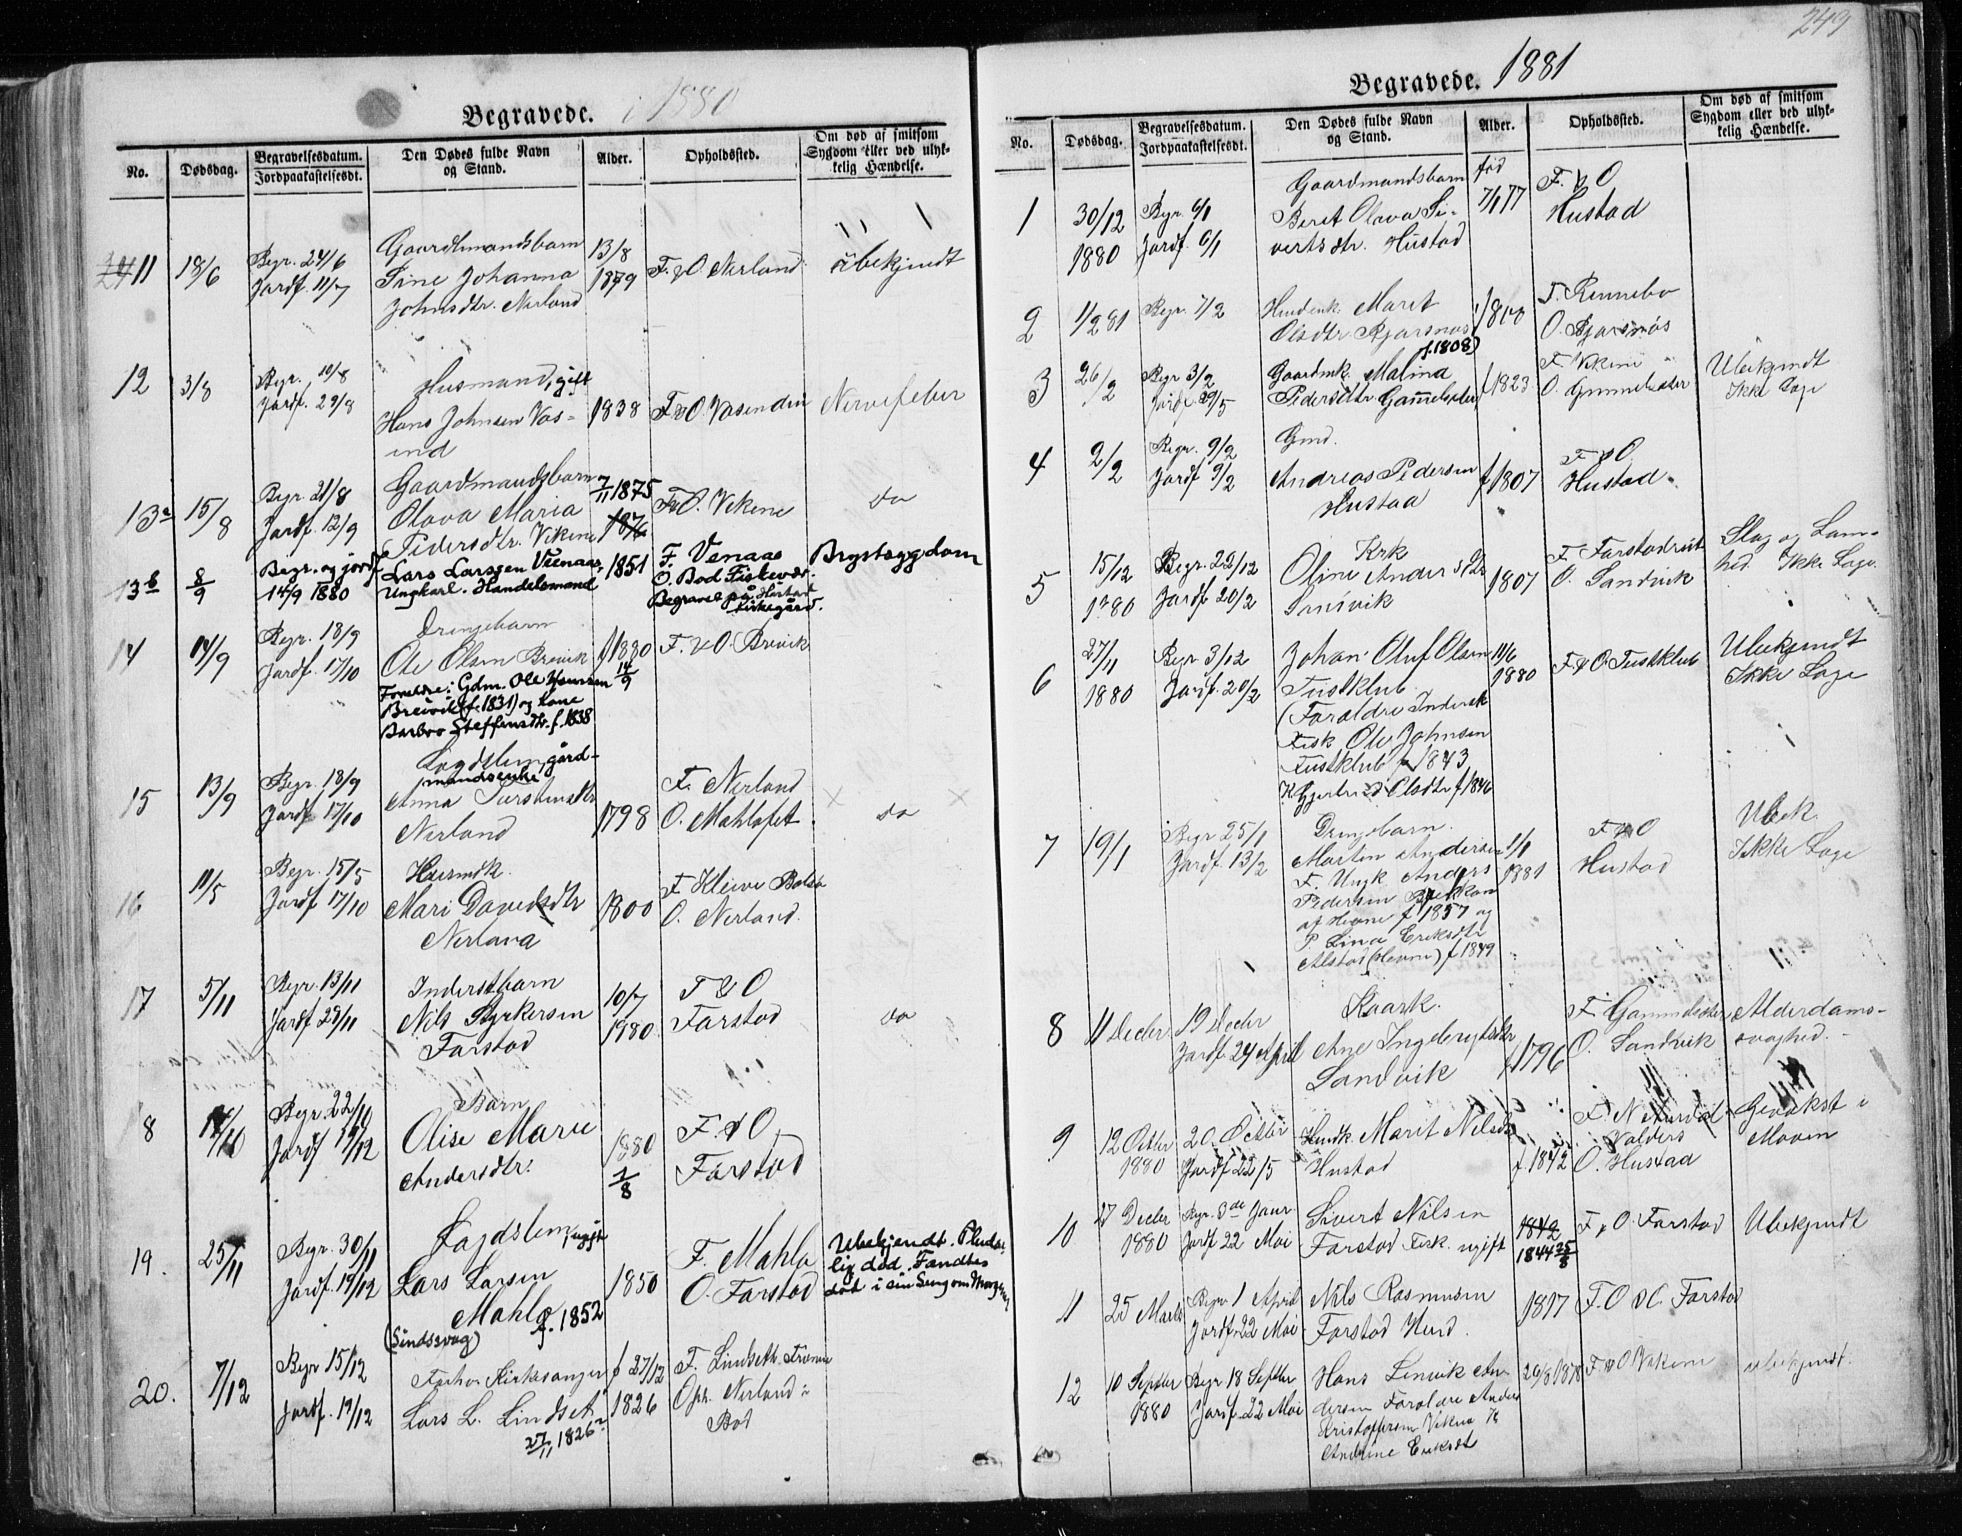 Begravede. i 1880
No.
Dødsdag.
Begravelsesdatum.
Jordpaakastelsesdt.
Den Dødes fulde Navn
og Stand.
Alder.
Opholdssted.
Om død af smitsom
Sygdom eller ved ulyk-
kelig Hændelse.
11
18/6
Begr. 24/6
Jordf. 11/7
Gaardmandsbarn
Sine Johanna
Johnsdtr. Nerland
13/8
1879
F. & O. Nerland
Ubekjendt
12
3/8
Begr. 10/8
Jordf. 29/8
Husmand, gift
Hans Johnsen Vas-
end
1838
F & O. Vasenden
Nervefeber
13a
15/8
Begr. 21/8
Jordf. 12/9
Gaardmandsbarn
Olava Maria
Pedersdtr. Vikene
7/11 1875
1876
F & O. Vikene
do
13b
8/9
Begr. og jordf.
14/9 1880
Lars Larssen Vienaas,
Ungkarl. Handelsmand
1851
F. Venaas
O. Bod Fiskevær.
Begravet på Hustad
kirkegård.
Brystsygdom
14
14/9
Begr. 18/9
Jordf. 17/10
Drengebarn
Ole Olsen Breivik
Foreldre: Gdm. Ole Hansen
Breivik (f. 1831) og kone
Barbro Steffensdtr. f. 1838
f 1880
14/9
F. & O. Breivik
15
13/9
Begr. 18/9
Jordf. 17/10
Lægdslem, gård-
mandsenke
Anna Torstensdtr
Nerland
1798
F. Nerland
O. Mahlefet
do
16
11/5
Begr. 15/5
Jordf. 17/10
Husmdk.
Mari Davidsdtr
Nerland
1800
F. Kleive Bolsø
O. Nerland.
17
5/11
Begr. 13/11
Jordf. 29/11
Inderstbarn
Nils Styrkersen
Farstad
10/7
1980
F & O
Farstad
do
18
14/10
Begr. 22/10
Jordf 19/12
Barn
Olise Marie
Andersdtr.
1880
7/8
F. & O
Farstad
19.
25/11
Begr. 30/11
Jordf. 19/12
Lægdslem, ugift
Lars Larsen
Mahlø f. 1852
(Sindssvag)
1850
F. Mahlø
O. Farstad
Ubekjendt. Pludse-
lig død. Fandtes
død i sin Seng om Morgenen
20.
7/12
Begr 15/12
Jordf. 19/12
Forhv. Kirkesanger
Lars L. Lindset
27/11 1826?
f 27/12
1826
F. Lindseth. Frænen
Oph. Nerland i
Bod
249
Begravede. 1881
No.
Dødsdag.
Begravelsesdatum.
Jordpaakastelsesdt.
Den Dødes fulde Navn
og Stand.
Alder.
Opholdssted.
Om død af smitsom
Sygdom eller ved ulyk-
kelig Hændelse.
1
30/12
1880
Begr. 6/1
Jordf. 6/1
Gaardmandsbarn
Beret Olava Si-
vertsdtr. Hustad
fød
7/1 77
F. & O
Hustad
2
1/2 81
Begr. 7/2
Maret
Olsdtr Bjørsnøs
f. 1808)
F. Rennebo
O. Bjørsnøs
3
26/2
Begr 3/2
Jordf. 29/5
Gaardmk. Malina
Pedersdtr Gammelsæter
f 1823
F. Vikene
O. Gammelsæter
Ubekjendt
Ikke Læge
4
2/2
Begr. 9/2
Jordf 9/2
Gmd.
Andreas Pedersen
Hustad
f 1807
F & O
Hustad.
5
15/12
1880
Begr. 22/12
Jordf. 20/2
Krk
Oline Andersdtr
Sandvik
1807
F. Farstad
O. Sandvik
Slag og Lam-
hed. Ikke Læge.
6
27/11
1880
Begr 3/12
Jordf. 20/2
Johan Oluf Olsen
Tustklub.
(Forældre Inderst
Fisk Ole Johnsen
Tustklub f 1843
K Gjertrud Olsdtr f 1846
11/6
1880
F & O. Tustklub
Ubekjendt
Ikke Læge
7
19/1
Begr 25/1
Jordf. 13/2
Drengebarn.
Morten Andersen
F. Ungk. Anders
Pedersen Brekkan
af Hevne f 1857 og
P. Lina Eriksdtr
Alstad (Hevne) f 1849
1/1
1881
F & O
Hustad
Ubek.
Ikke Læge
8
11 Decbr
19 Decbr
Jordf 24 April
Kaark.
Ane Ingebrigtsdtr
Sandvik
f 1796
F. Gammelsæter
O. Sandvik
Alderdoms-
svaghed.
9
12 Octbr
1880
20. Octbr
Jordf 22/5
Marit Nilsdtr
Hustad
f 1842
Valders
O. Hustad
Gevækst i
Maven
10
27 Decbr
1880
Begr. 3de Janr
Jordf 22 Mai
Sivert Nilsen
Farstad Fisk. ugift
1842
1844 25/8
F & O. Farstad
Ubekjendt
11
25 Marts
Begr 1 April
Jordf. 22 Mai
Nils Rasmusen
Farstad Husd.
1817
F. O & O. Farstad
12
10 Septbr
1880
Begr 18 Septbr
Jordf. 22 Mai
Hans Linvik An-
dersen Forældre Anders
Kristoffersen Vikene
Andrine Eriksdt
26/8 1878
F & O Vikene
ubekjendt.